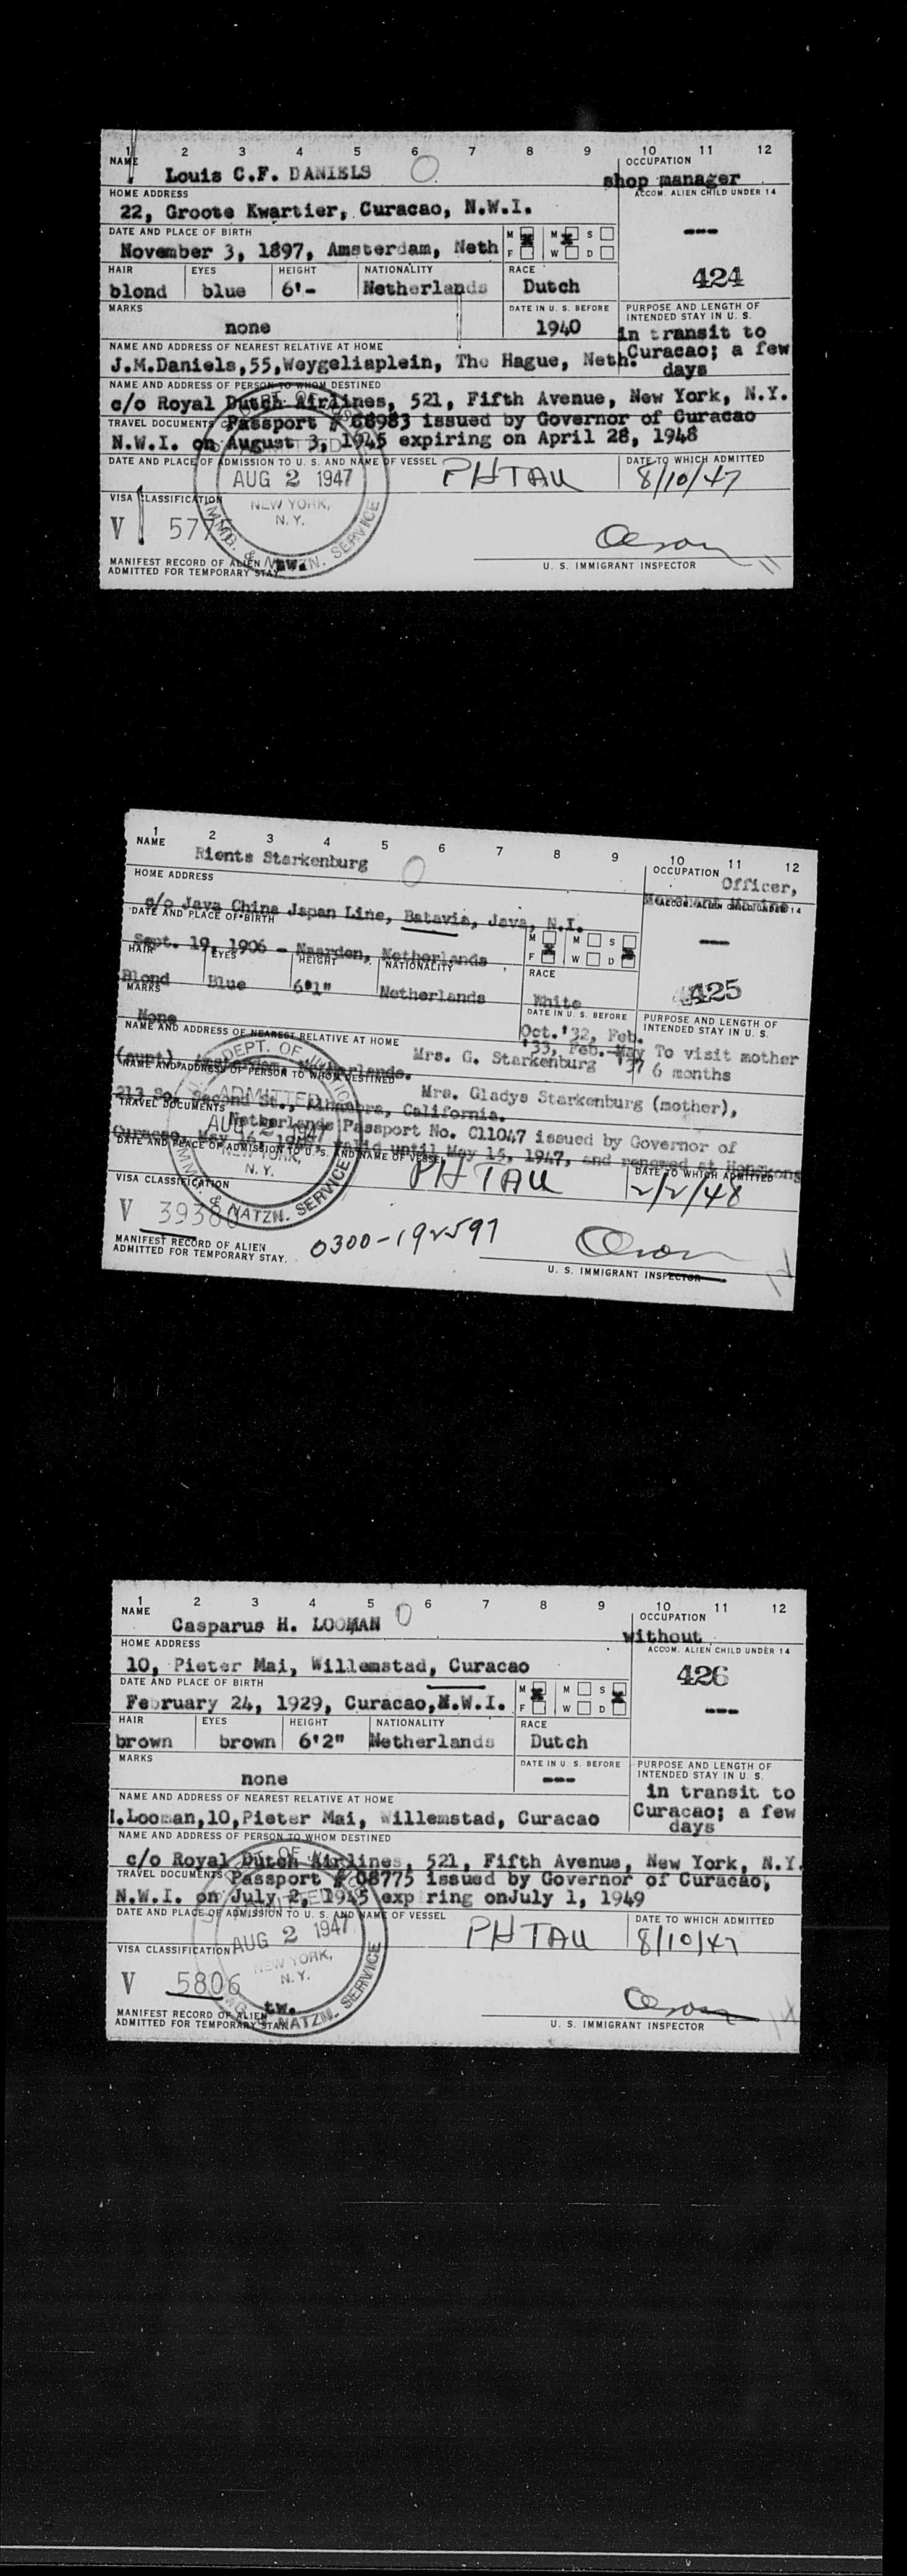 1 2 3 4 5 6 7 8 9 10 11 12
NAME OCCUPATION
Louis C.F. DANIELS shop manager
HOME ADDRESS ACCOM. ALIEN CHILD UNDER 14
22, Groote Kwartier, Curacao, N.W.I. ---
DATE AND PLACE OF BIRTH M M S
November 3, 1897, Amsterdam, Neth F W D
424
HAIR EYES HEIGHT NATIONALITY RACE
blond blue 6'- Netherlands Dutch
MARKS DATE IN U. S. BEFORE PURPOSE AND LENGTH OF INTENDED STAY IN U. S.
none 1940 in transit to
NAME AND ADDRESS OF NEAREST RELATIVE AT HOME Curacao; a few
J.M.Daniels,55,Weygeliaplein, The Hague, Neth. days
NAME AND ADDRESS OF PERSON TO WHOM DESTINED
c/o Royal Dutch Airlines, 521, Fifth Avenue, New York, N.Y.
TRAVEL DOCUMENTS Passport # issued by Governor of Curacao
N.W.I. on August 3, 1945 expiring on April 28, 1948
DATE AND PLACE OF ADMISSION TO U. S. AND NAME OF VESSEL DATE TO WHICH ADMITTED
AUG 2 1947 PHTAU 8/10/47
VISA CLASSIFICATION NEW YORK,
V N. Y.
IMMG. & NATZN. SERVICE
MANIFEST RECORD OF ALIEN
ADMITTED FOR TEMPORARY STAY
U. S. IMMIGRANT INSPECTOR
1 2 3 4 5 6 7 8 9 10 11 12
NAME OCCUPATION
Rients Starkenburg Officer,
HOME ADDRESS Merchant Marine
ACCOM. ALIEN CHILD UNDER 14
c/o Java China Japan Line, Batavia, Java, N.I.
DATE AND PLACE OF BIRTH M M S ---
Sept. 19, 1906 - Naarden, Netherlands F W D
425
HAIR EYES HEIGHT NATIONALITY RACE
Blond Blue 6'1" Netherlands White
MARKS DATE IN U. S. BEFORE PURPOSE AND LENGTH OF INTENDED STAY IN U. S.
None Oct.'32, Feb.
'33, Feb.-May '37 To visit mother
6 months
NAME AND ADDRESS OF NEAREST RELATIVE AT HOME Mrs. G. Starkenburg
(aunt) Netherlands.
NAME AND ADDRESS OF PERSON TO WHOM DESTINED Mrs. Gladys Starkenburg (mother),
213 So. Second St., Alhambra, California.
TRAVEL DOCUMENTS Netherlands Passport No. C11047 issued by Governor of
Curacao, May valid until May 15, 1947, and renewed at Hongkong
DATE AND PLACE OF ADMISSION TO U. S. AND NAME OF VESSEL DATE TO WHICH ADMITTED
U. S. DEPT. OF JUSTICE
ADMITTED
AUG 2 1947
NEW YORK,
N. Y.
IMMG. & NATZN. SERVICE
PHTAU 2/2/48
VISA CLASSIFICATION
V 39380
MANIFEST RECORD OF ALIEN
ADMITTED FOR TEMPORARY STAY. 0300-192597
U. S. IMMIGRANT INSPECTOR
1 2 3 4 5 6 7 8 9 10 11 12
NAME OCCUPATION
Casparus H. LOOMAN without
HOME ADDRESS ACCOM. ALIEN CHILD UNDER 14
10, Pieter Mai, Willemstad, Curacao 426
DATE AND PLACE OF BIRTH M M S
February 24, 1929, Curacao,N.W.I. F W D ---
HAIR EYES HEIGHT NATIONALITY RACE
brown brown 6'2" Netherlands Dutch
MARKS DATE IN U. S. BEFORE PURPOSE AND LENGTH OF INTENDED STAY IN U. S.
none --- in transit to
NAME AND ADDRESS OF NEAREST RELATIVE AT HOME Curacao; a few
I.Looman,10,Pieter Mai, Willemstad, Curacao days
NAME AND ADDRESS OF PERSON TO WHOM DESTINED
c/o Royal Dutch Airlines, 521, Fifth Avenue, New York, N.Y.
TRAVEL DOCUMENTS Passport # 08775 issued by Governor of Curacao,
N.W.I. on July 2, 1945 expiring onJuly 1, 1949
DATE AND PLACE OF ADMISSION TO U. S. AND NAME OF VESSEL DATE TO WHICH ADMITTED
AUG 2 1947 PHTAU 8/10/47
VISA CLASSIFICATION NEW YORK,
N. Y.
V 5806
tw.
NATZN. SERVICE
MANIFEST RECORD OF ALIEN
ADMITTED FOR TEMPORARY STAY.
U. S. IMMIGRANT INSPECTOR